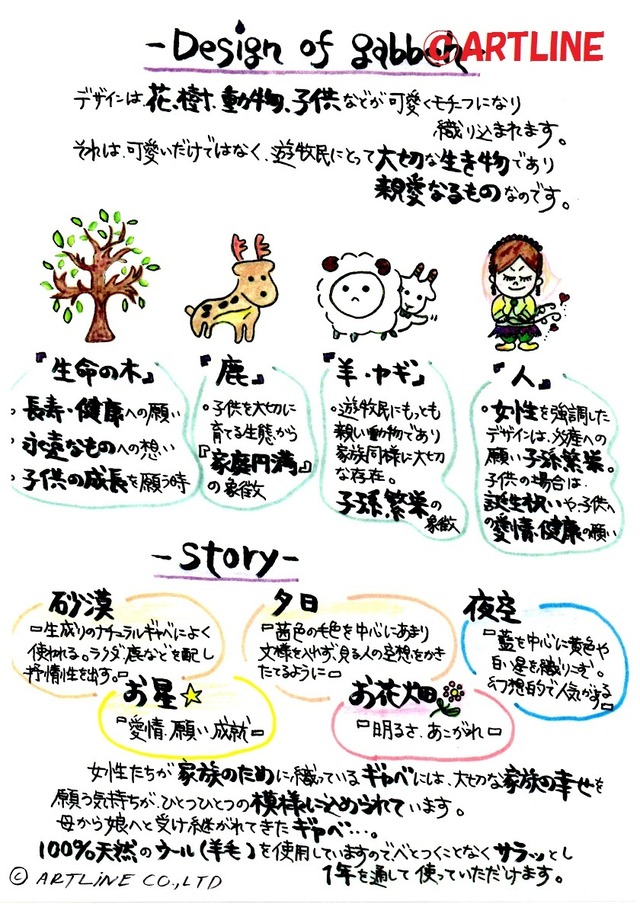 -Design of gabbeh-
© ARTLINE
デザインは、花、樹、動物、子供などが可愛くモチーフになり
織り込まれます。
それは、可愛いだけではなく、遊牧民にとって大切な生き物であり
親愛なるものなのです。
『生命の木』
・長寿・健康への願い
・永遠なものへの想い
・子供の成長を願う時
『鹿』
・子供を大切に
育てる生態から
『家庭円満』
の象徴
『羊・ヤギ』
・遊牧民にもっとも
親しい動物であり
家族同様に大切
な存在。
子孫繁栄の
象徴
『人』
・女性を強調した
デザインは、多産への
願い子孫繁栄。
子供の場合は、
誕生祝いや、子供へ
の愛情、健康の願い
-Story-
砂漠
『生成りのナチュラルギャベによく
使われる。ラクダ、鹿などを配し
抒情性を出す。』
夕日
『茜色の毛色を中心にあまり
文様を入れず、見る人の空想をかき
たてるように』
夜空
『藍を中心に黄色や
白い星を織りこむ。
幻想的で人気がある』
お星☆
『愛情、願い、成就』
お花畑
『明るさ、あこがれ』
女性たちが家族のために織っているギャベには、大切な家族の幸せを
願う気持ちが、ひとつひとつの模様に込められています。
母から娘へと受け継がれてきたギャベ・・・。
100%天然のウール(羊毛)を使用していますのでべとつくことなくサラッとし
1年を通して使っていただけます。
© ARTLINE CO.,LTD